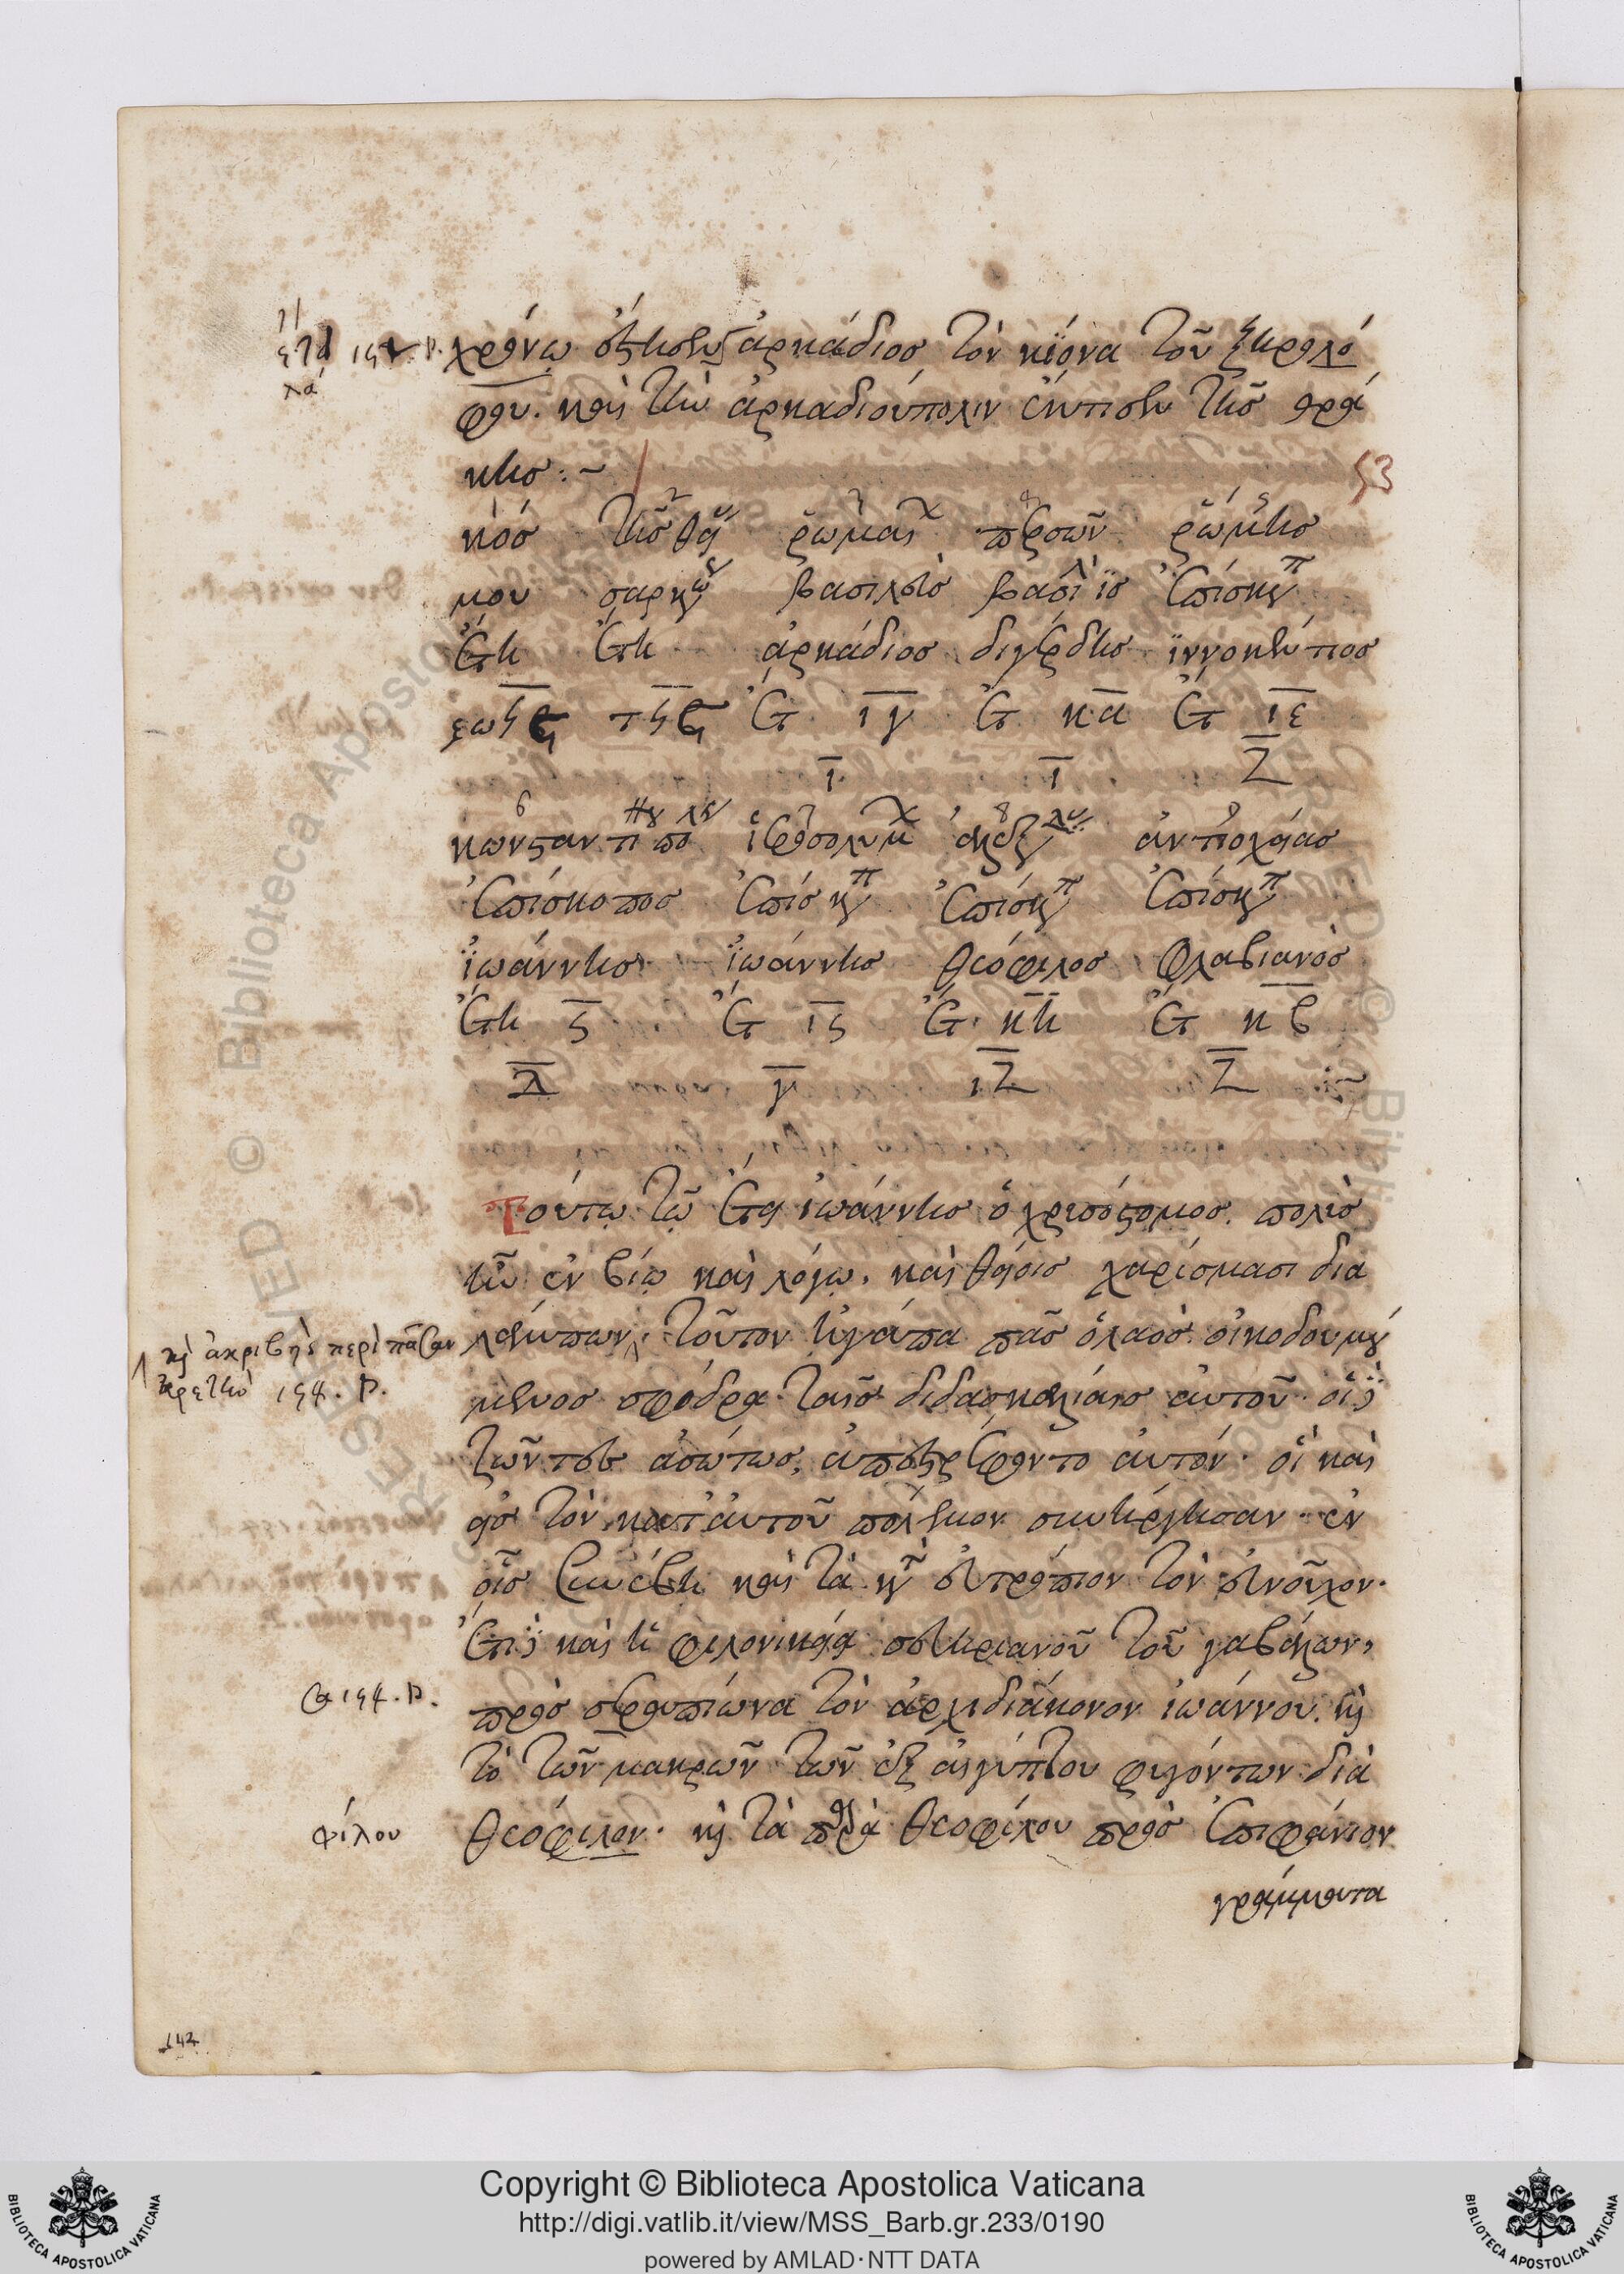 χρόνῳ ἔστησεν ἀρκάδιος τὸν κίονα τοῦ ξηρολό
φου. καὶ τὴν ἀρκαδιούπολιν ἔκτισεν τῆς θρά
κης :~
53
κό‍σ τῆς θεί ῥωμαί περσῶν ῥώμης
μου σαρκώ βασιλεὺς βασιλ ἐπίσκπ
ἔτη ἔτη ἀρκάδιος ἰννοκέντιος
ἔτ ιγ ἔτ κα ἔτ ιε
ι ι ζ
κωνσταντι πό ἱεροσολύμ ἀντιοχείας
ἐπίσκοπος ἐπίσκπ ἐπίσκπ ἐπίσκπ
ἰωάννης ἰωάννης θεόφιλος φλαβιανὸς
ἔτη ϛ ἔτ ιϛ ἔτ κη ἔτ κβ
λ γ ιζ ζ
Τούτῳ τῷ ἔτει ἰωάννης ὁ χρυσόστομος. πολὺς
ἦν ἐν βίῳ καὶ λόγῳ. καὶ θείοις χαρίσμασι δια
λάμπων. τοῦτον ἠγάπα πᾶς ὁ λαὸς οἰκοδομού
μενος σφόδρα ταῖς διδασκαλίαις αὐτοῦ. οἱ δὲ
ζῶντες ἀσώτως, ἀπεστρέφοντο αὐτόν. οἳ καὶ
εἰς τὸν κατ' αὐτοῦ πόλεμον συνήργησαν. ἐν
οἷς συνέβη καὶ τὰ κατ εὐτρόπιον τὸν εὐνοῦχον.
ἔτι δὲ καὶ ἡ φιλονικεία σευηριανοῦ τοῦ γαβάλων,
πρὸς σεραπίωνα τὸν ἀρχιδιάκονον ἰωάννου. καὶ
τὸ τῶν μακρῶν τῶν ἐξ αἰγύπτου φυγόντων διὰ
θεόφιλον. καὶ τὰ παρὰ θεοφίλου πρὸς ἐπιφάνιον
γράμματα
καὶ ἀκριβὴς περὶ πᾶσαν
ἀρετὴν
φίλου
142
Copyright © Biblioteca Apostolica Vaticana
http://digi.vatlib.it/view/MSS_Barb.gr.233/0190
powered by AMLAD·NTT DATA
BIBLIOTECA APOSTOLICA VATICANA
BIBLIOTECA APOSTOLICA VATICANA